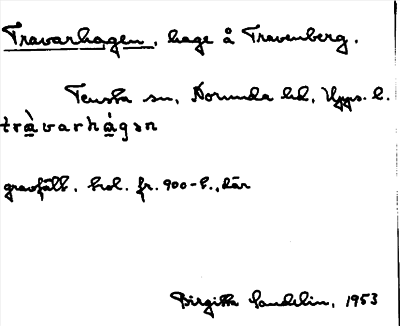 Travarhagen, hage å Travenberg.
Tensta sn, Norunda hd, Upps. l.
tràvarhágən
gravfält, trol. fr. 900-t., där
Birgitta Sundelin, 1953